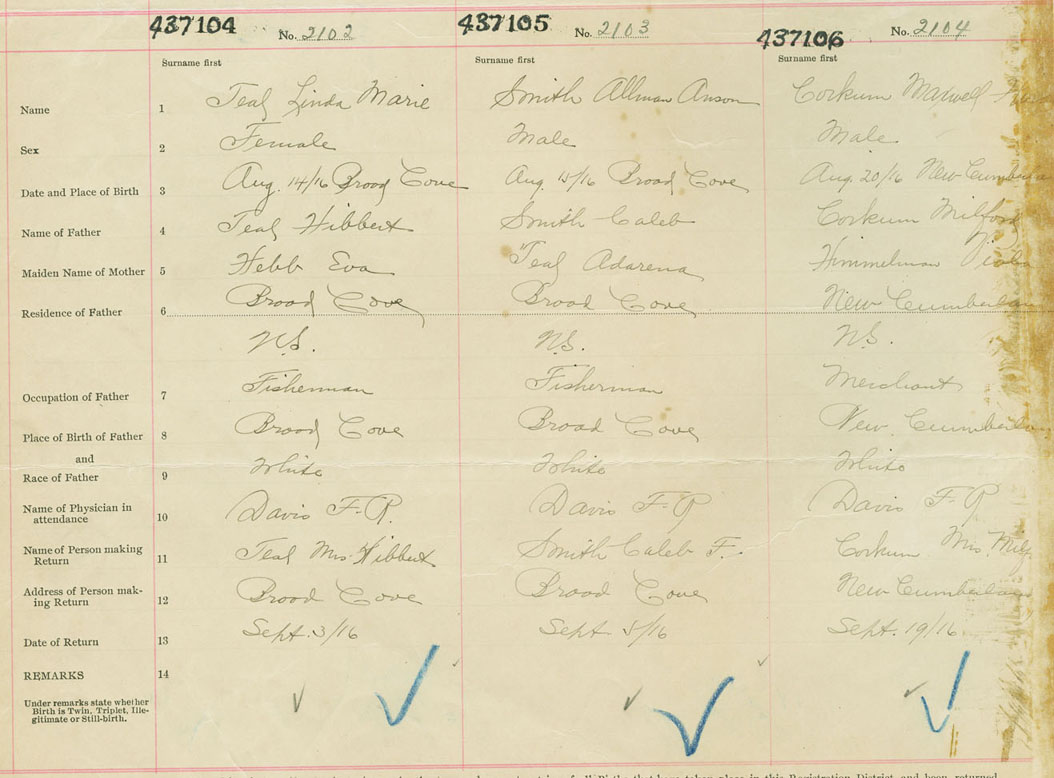 437104 No. 2102 437105 No. 2103 437106 No. 2104
Surname first Surname first Surname first
Name 1 Teal Linda Marie Smith Allman Anson Corkum Maxwell
Sex 2 Female Male Male
Date and Place of Birth 3 Aug. 14/16 Broad Cove Aug. 15/16 Broad Cove Aug. 20/16 New Cumberlan
Name of Father 4 Teal Hibbert Smith Caleb Corkum Milford
Maiden Name of Mother 5 Hebb Eva Teal Adarena Himmelman Viola
Residence of Father 6 Broad Cove Broad Cove New Cumberlan
N.S. N.S. N.S.
Occupation of Father 7 Fisherman Fisherman Merchant
Place of Birth of Father 8 Broad Cove Broad Cove New Cumberlan
and
Race of Father 9 White White White
Name of Physician in
attendance 10 Davis F. R. Davis F. R Davis F R
Name of Person making
Return 11 Teal Mrs Hibbert Smith Caleb F. Corkum Mrs Milf
Address of Person mak-
ing Return 12 Broad Cove Broad Cove New Cumberlan
Date of Return 13 Sept. 3/16 Sept. 5/16 Sept. 19/16
REMARKS 14
Under remarks state whether
Birth is Twin, Triplet, Ille-
gitimate or Still-birth.
of all Births that have taken place in this Registration District and been returned